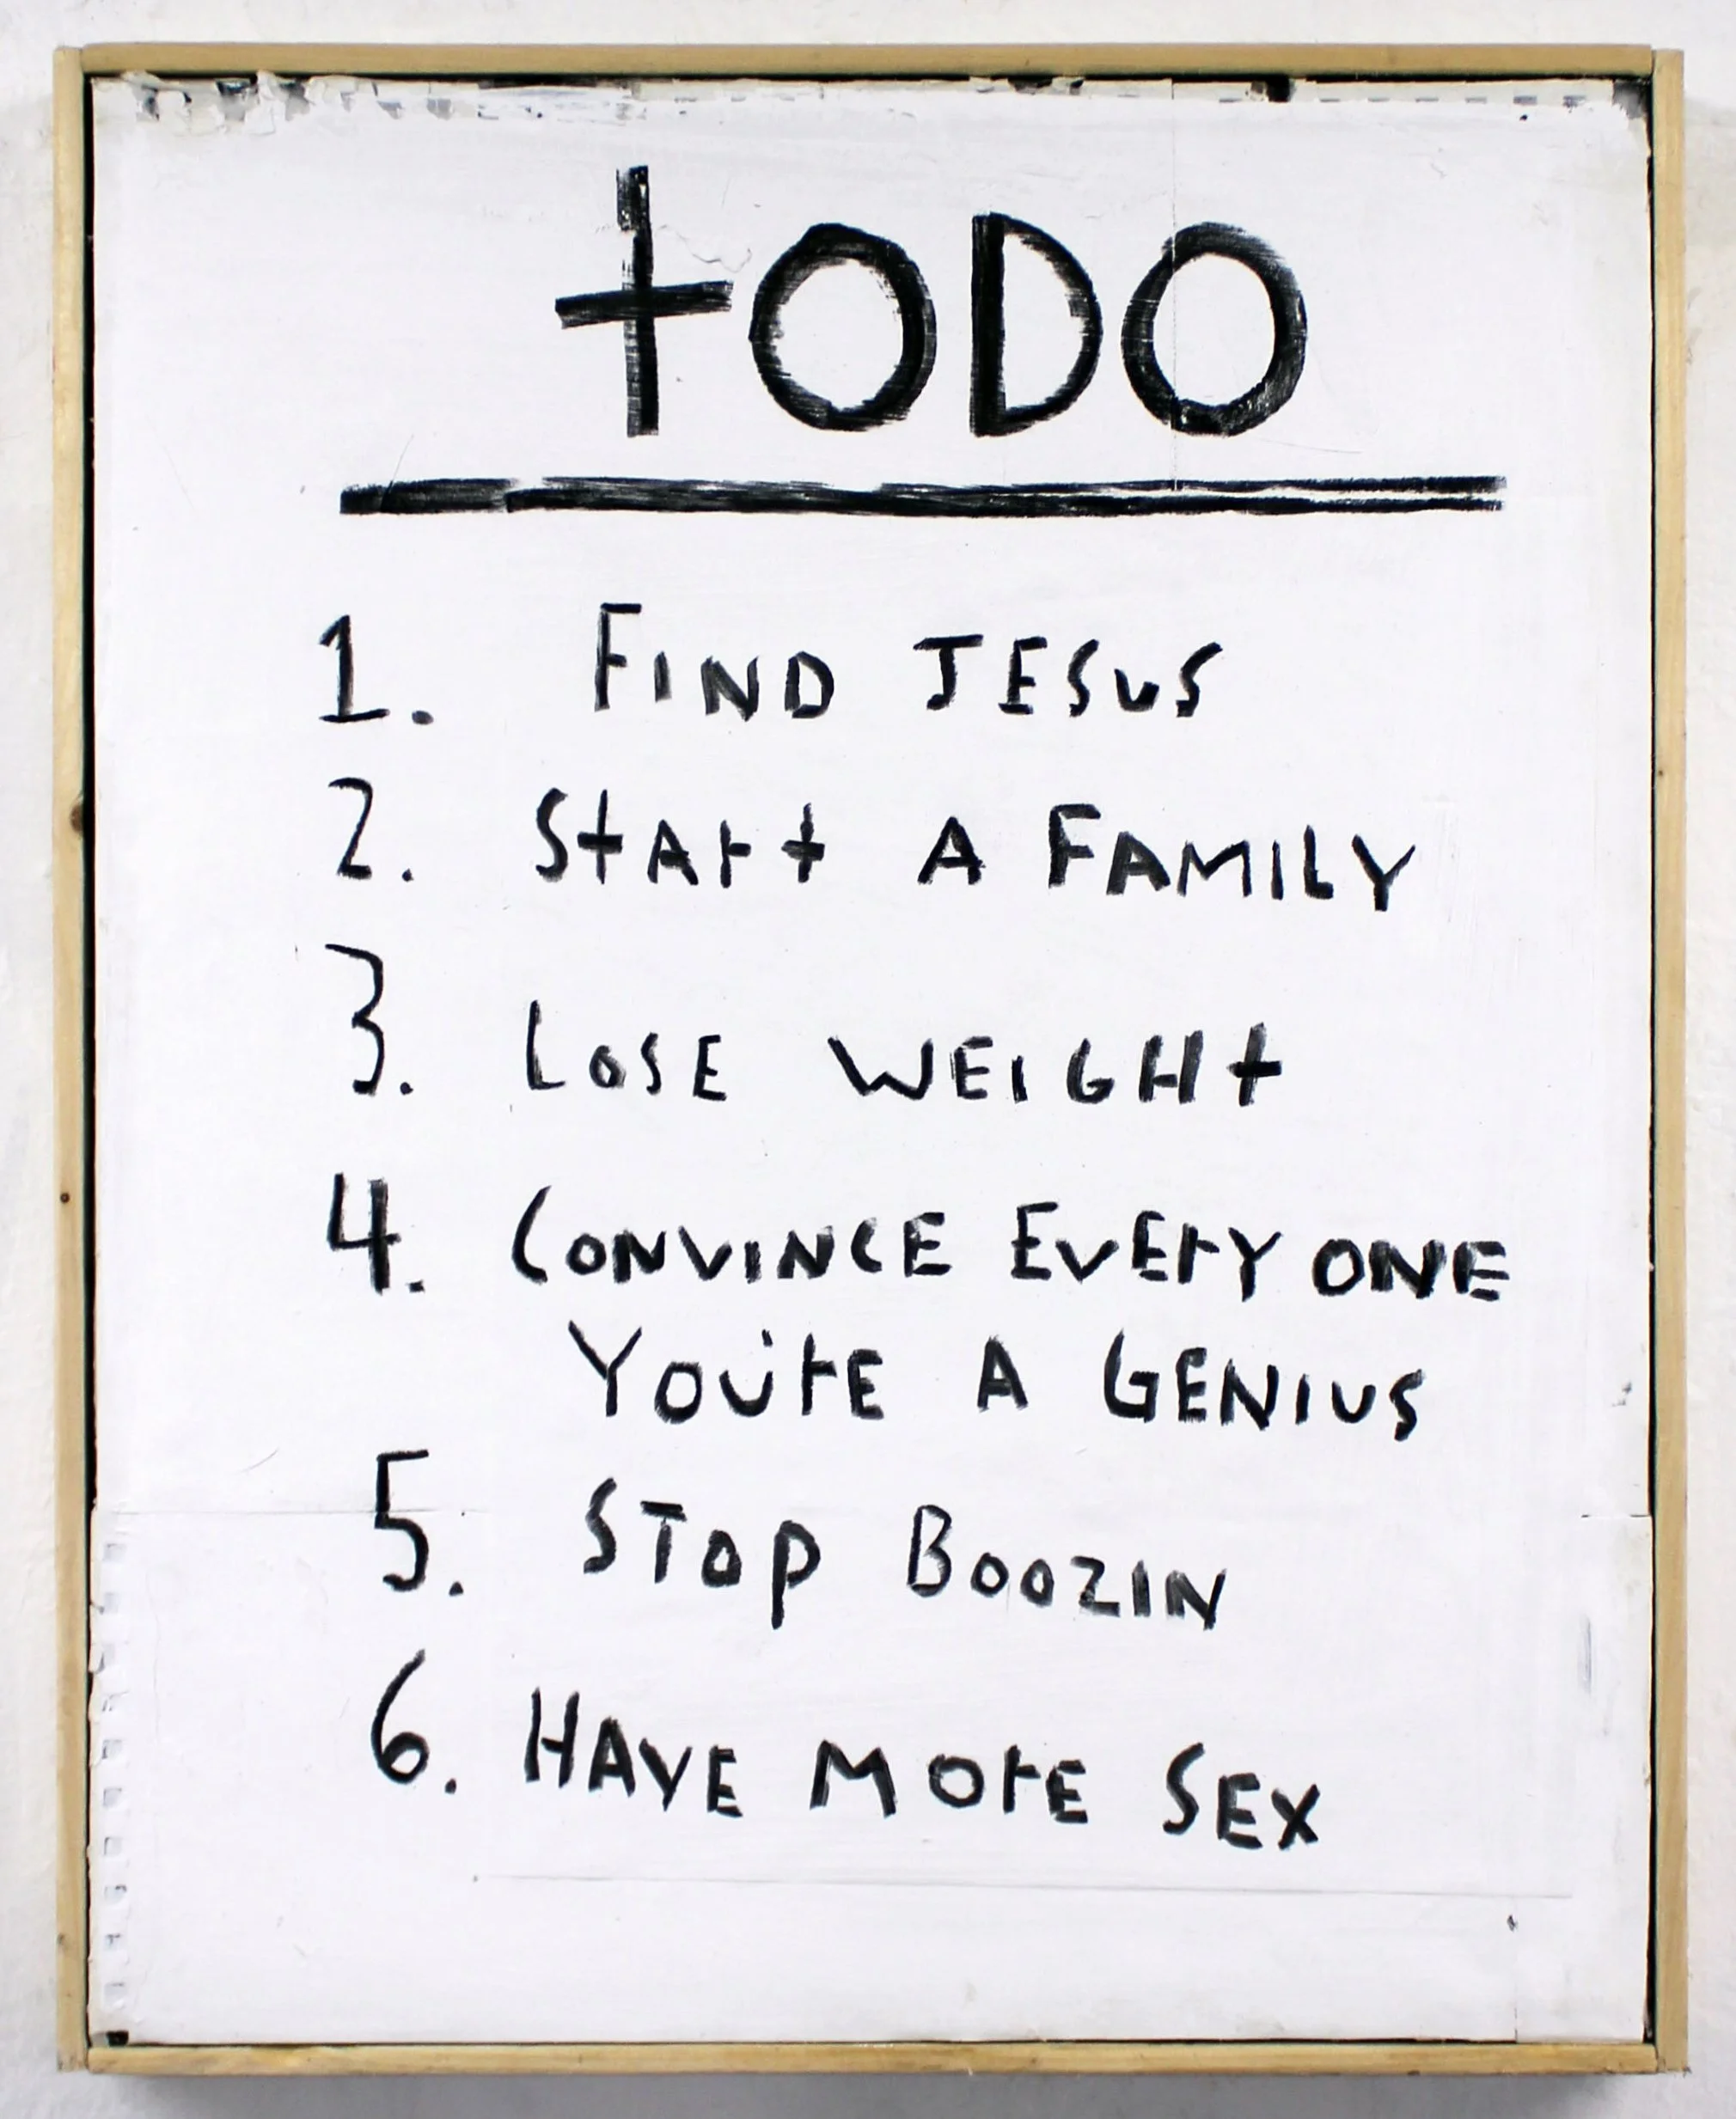 tODO
1. FIND JESUS
2. StArt A FAMILY
3. LOSE WEIGHt
4. CONVINCE EVErY ONE
YOU'rE A GENIUS
5. STOP BOOZIN
6. HAVE MOrE SEX